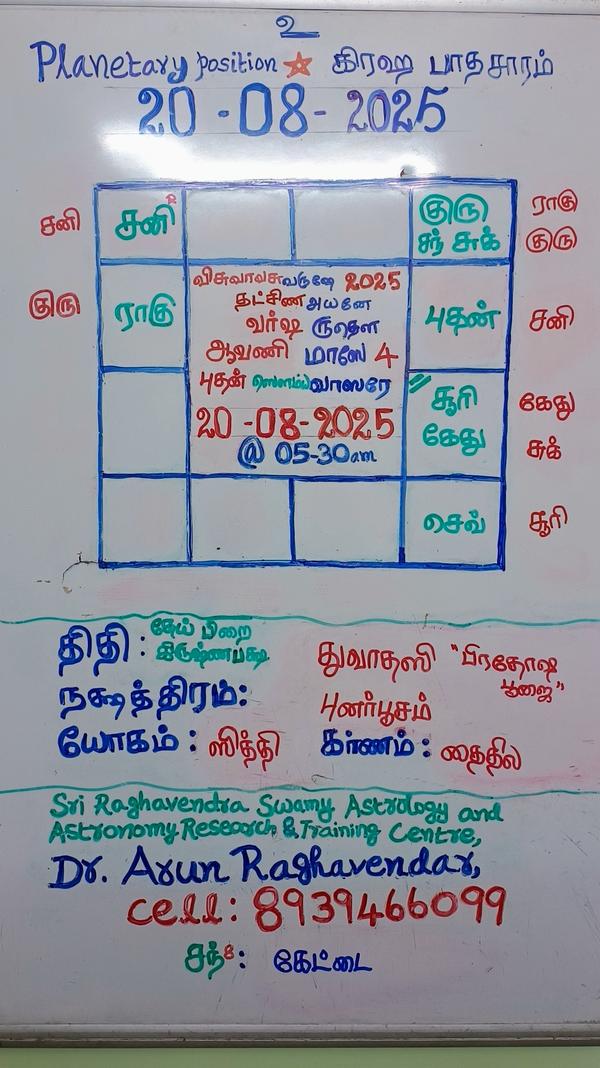 உ
Planetary position கிரஹ பாதசாரம்
20-08-2025
சனி
சனி R
குரு
சந் சுக்
ராகு
குரு
குரு
ராகு
விசுவாவசுவருஷே 2025
தட்சிண அயனே
வர்ஷ ருதௌ
ஆவணி மாஸே 4
புதன் ஸௌம்யவாஸரே
20-08-2025
@ 05-30am
புதன்
சனி
சூரி
கேது
கேது
சுக்
செவ்
சூரி
திதி : தேய் பிறை
கிருஷ்ணபக்ஷ
துவாதஸி "பிரதோஷ
பூஜை"
நக்ஷத்திரம்: புனர்பூசம்
யோகம் : ஸித்தி கர்ணம் : தைதில
Sri Raghavendra Swamy Astrology and
Astronomy Research & Training Centre,
Dr. Arun Raghavendar,
cell: 8939466099
சந்8: கேட்டை